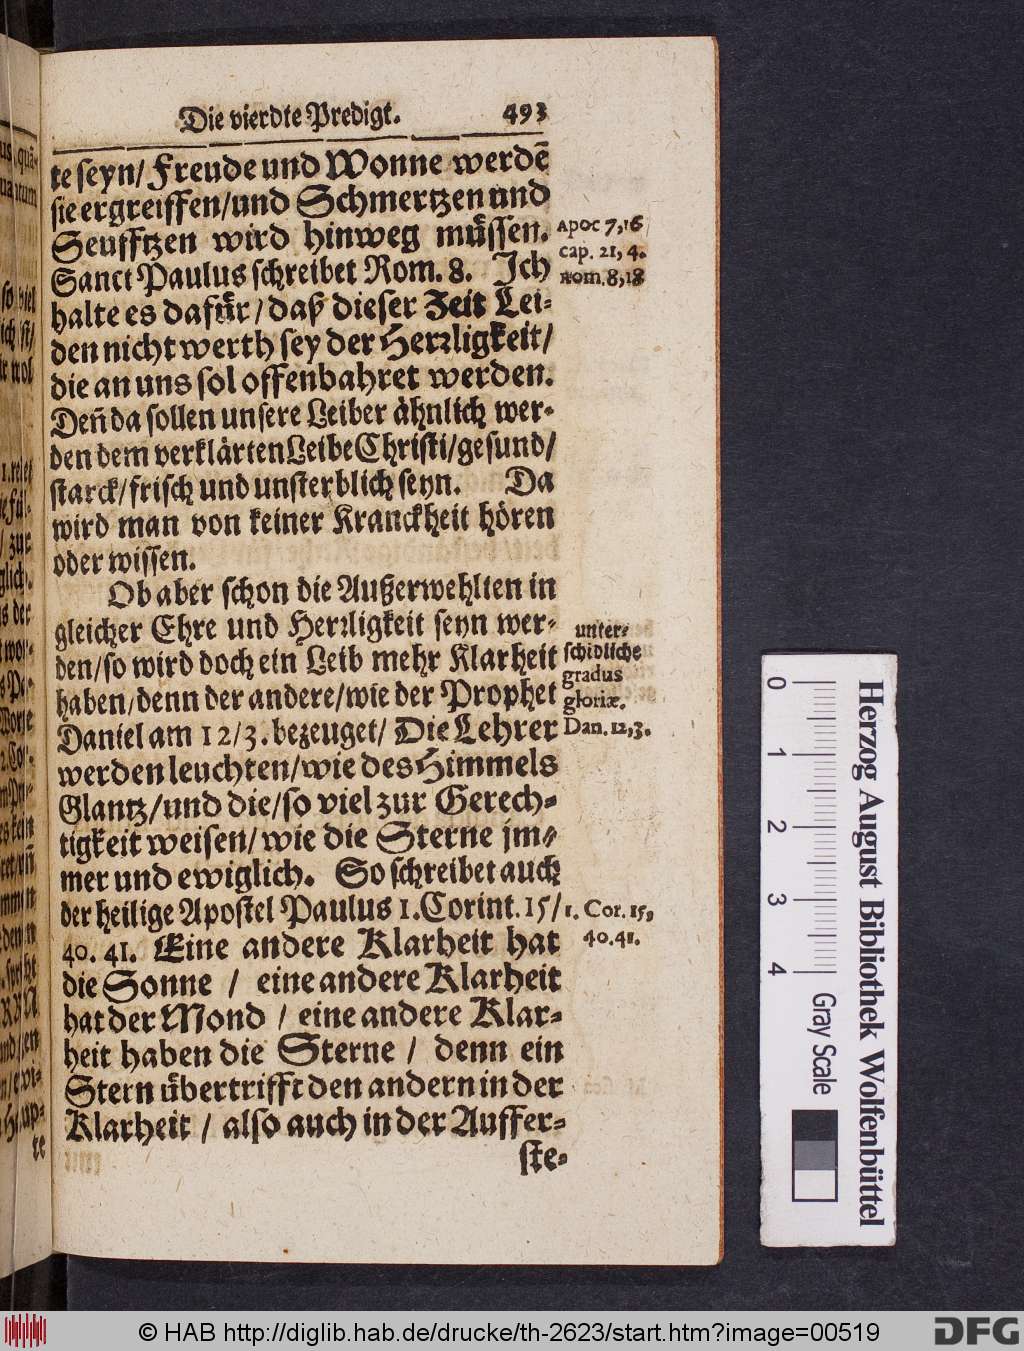 Die vierdte Predigt. 493
te seyn/ Freude und Wonne werdē
sie ergreiffen/und Schmertzen und
Seufftzen wird hinweg muͤssen.
Sanct Paulus schreibet Rom. 8. Ich
halte es dafuͤr/daß dieser Zeit Lei-
den nicht werth sey der Herꝛligkeit/
die an uns sol offenbahret werden.
Deñ da sollen unsere Leiber aͤhnlich wer-
den dem verklaͤrten Leibe Christi/gesund/
starck/frisch und unsterblich seyn. Da
wird man von keiner Kranckheit hoͤren
oder wissen.
Ob aber schon die Außerwehlten in
gleicher Ehre und Herꝛligkeit seyn wer-
den/so wird doch ein Leib mehr Klarheit
haben/denn der andere/wie der Prophet
Daniel am 12/3. bezeuget/ Die Lehrer
werden leuchten/wie des Himmels
Glantz/und die/so viel zur Gerech-
tigkeit weisen/wie die Sterne jm-
mer und ewiglich. So schreibet auch
der heilige Apostel Paulus 1. Corint. 15/
40. 41. Eine andere Klarheit hat
die Sonne / eine andere Klarheit
hat der Mond / eine andere Klar-
heit haben die Sterne / denn ein
Stern uͤbertrifft den andern in der
Klarheit / also auch in der Auffer-
ste-
Apoc 7,16
cap. 21, 4.
Rom. 8,18
unter-
schidliche
gradus
gloriæ.
Dan. 12,3.
1. Cor. 15,
40.41.
0 1 2 3 4
Gray Scale
Herzog August Bibliothek Wolfenbüttel
© HAB http://diglib.hab.de/drucke/th-2623/start.htm?image=00519
DFG